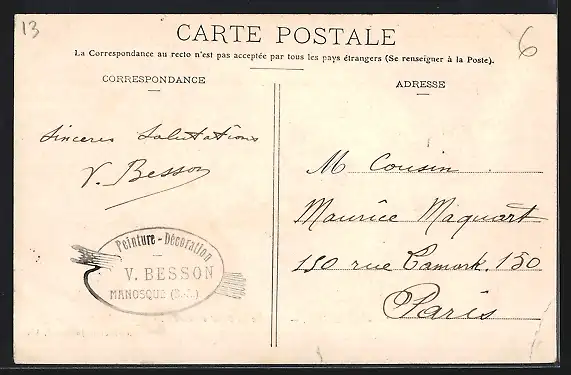 13
6
CARTE POSTALE
La Correspondance au recto n'est pas acceptée par tous les pays étrangers (Se renseigner à la Poste).
CORRESPONDANCE
Sinceres Salutations
V. Besson
Peinture - Décoration
V. BESSON
MANOSQUE
ADRESSE
M Cousin
Maurice Maquart
150 rue Lamark. 150
Paris